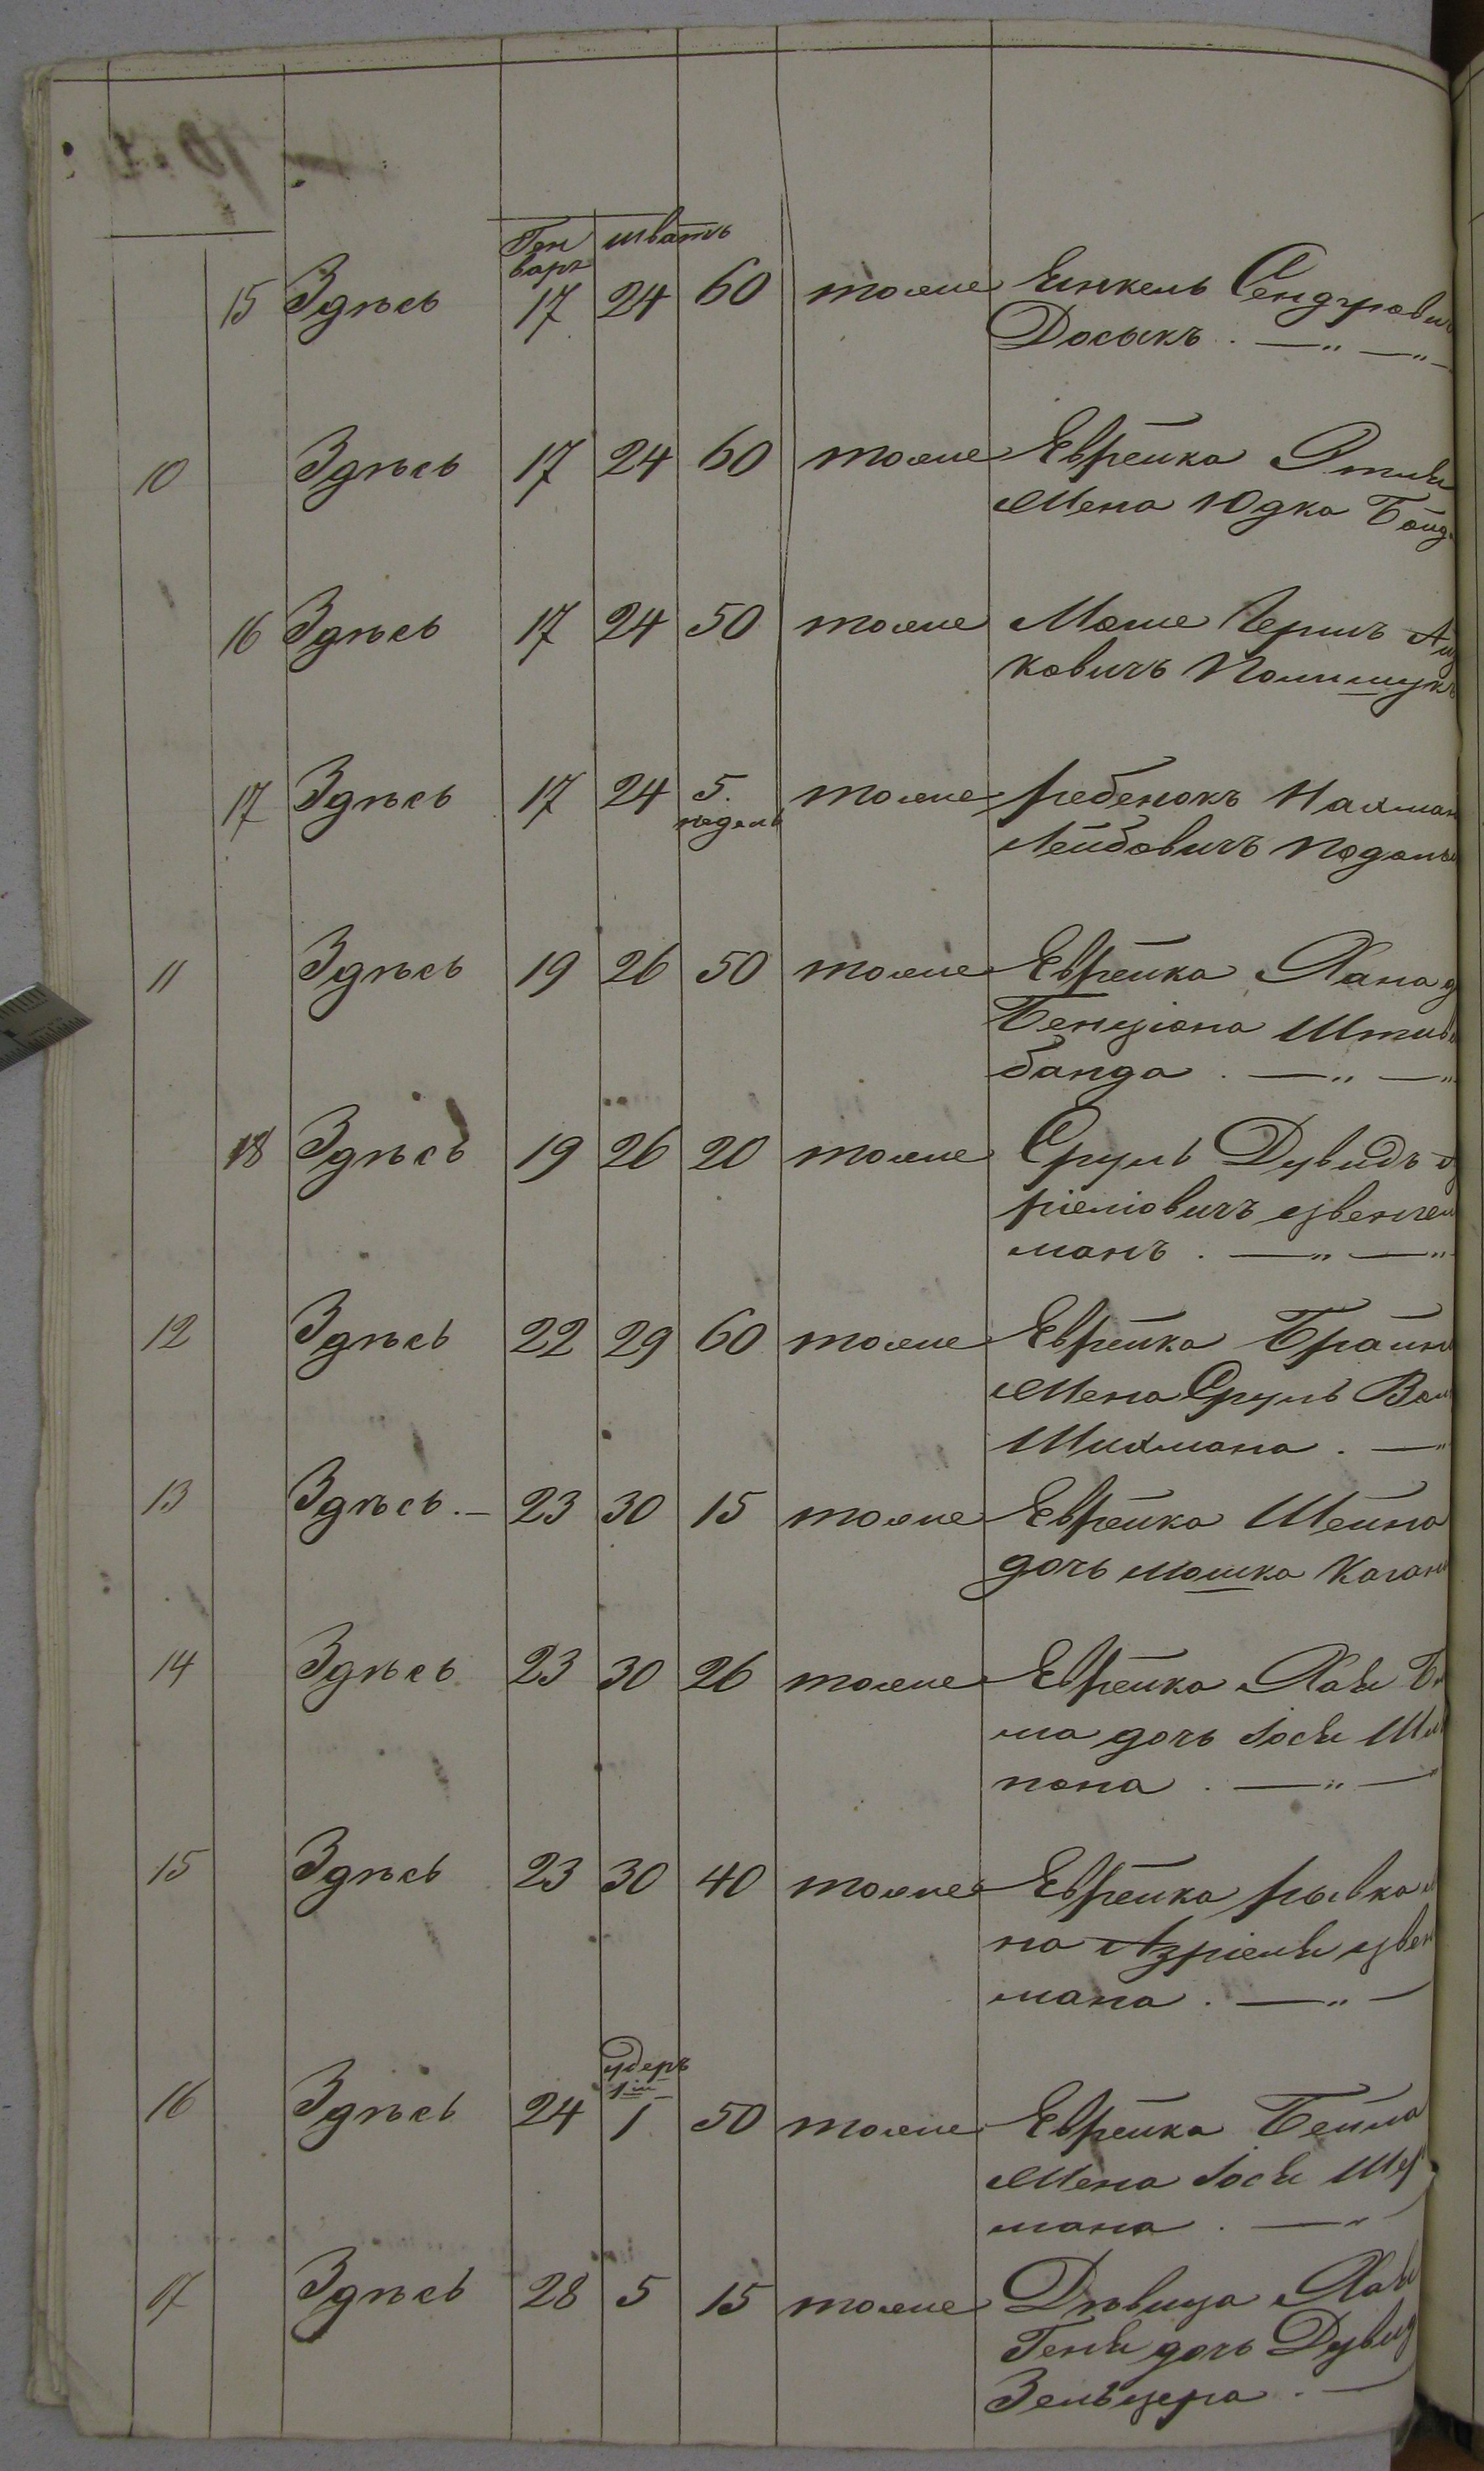 Генварь шватъ
15 Здѣсь 17 24 60 тоже Янкель Сендеровичъ
Досыкъ. —„—„—
10 Здѣсь 17 24 60 тоже Еврейка Этля
жена Юдка Бонд
16 Здѣсь 17 24 50 тоже Моше Гершъ
ковичъ Полищукъ
17 Здѣсь 17 24 5. тоже ребенокъ Нахман
недель Лейбовичъ
11 Здѣсь 19 26 50 тоже Еврейка Хана
Бенціона
банда. —„—„
18 Здѣсь 19 26 20 тоже Сруль Дувидъ
ріеліовичъ
манъ. —„—„
12 Здѣсь 22 29 60 тоже Еврейка Брайна
жена Сруль
Шихмана. —„
13 Здѣсь. — 23 30 15 тоже Еврейка Шейна
дочь Мошка Каган
14 Здѣсь 23 30 26 тоже Еврейка Хая
ма дочь Іося
пона. —„—
15 Здѣсь 23 30 40 тоже Еврейка Рывка
на Азріеля цвен
мана. —„—
одеръ
1й
16 Здѣсь 24 1 50 тоже Еврейка Бейла
жена Іося
мана. —„
17 Здѣсь 28 5 15 тоже Дѣвица Хая
Геня дочь Дувид
Зельцера. —